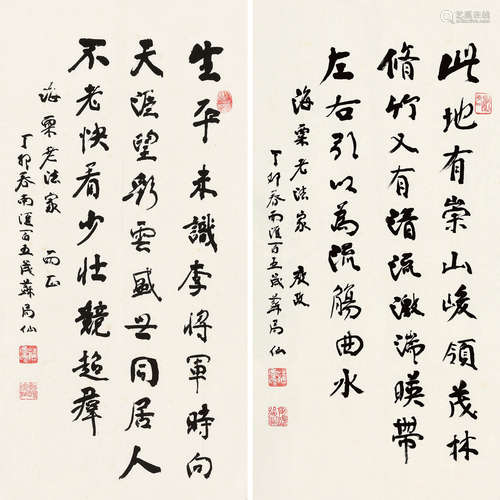 此地有崇山峻領茂林
脩竹又有清流激湍暎帶
左右引以為流觴曲水
海粟老法家 教政
丁卯春南滙百五歲蘇局仙
生平未識李將軍時向
天涯望彩雲盛世同居人
不老快看少壯競超群
海粟老法家 正
丁卯春南滙百五歲蘇局仙
艺狐在线